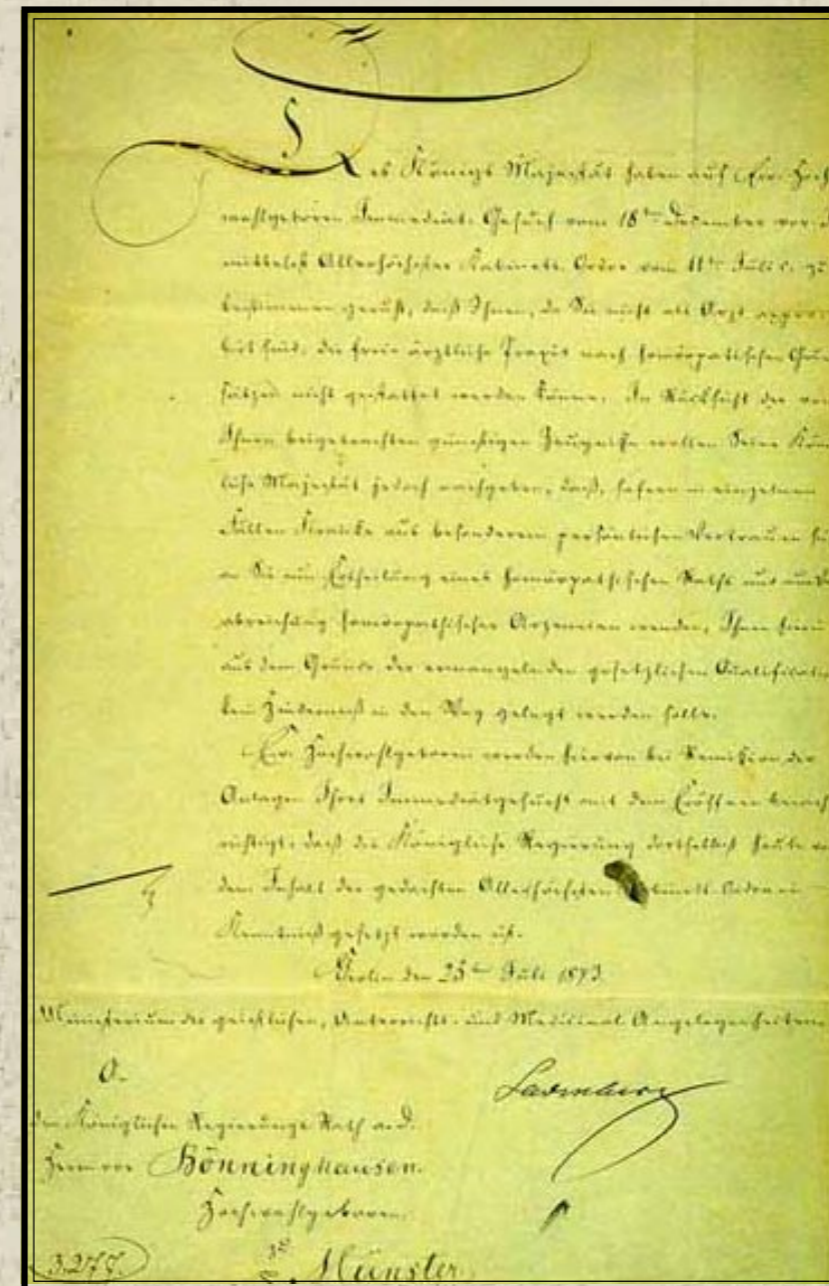 Des Königs Majestät haben auf Ew. Hoch
wohlgeboren Immediat-Gesuch vom 18ten Dezember vor. J.
mittelst Allerhöchster Kabinets-Ordre vom 11ten Juli c. zu
bestimmen geruht, daß Ihnen, da Sie nicht als Arzt appro
birt sind, die freie ärztliche Praxis nach homöopathischen Grun
sätzen nicht gestattet werden könne. In Rücksicht der von
Ihnen beigebrachten günstigen Zeugnisse wollen Seine König
liche Majestät jedoch nachgeben, daß, sofern in einzelnen
Fällen Kranke aus besonderem persönlichen Vertrauen si
an Sie um Ertheilung eines homöopathischen Raths und
abreichung homöopathischer Arzeneien wenden, Ihnen hierin
aus dem Grunde der ermangelnden gesetzlichen Qualificatio
kein Hinderniß in den Weg gelegt werden solle.
Ew. Hochwohlgeboren werden hiervon bei Remission der
Anlagen Ihres Immediatgesuchs mit dem Eröffnen benach
richtigt, daß die Königliche Regierung dortselbst heute vo
dem Inhalt der gedachten Allerhöchsten Kabinets-Ordre in
Kenntniß gesetzt worden ist.
Berlin den 25ten Juli 1843.
Ministerium der geistlichen, Unterrichts- und Medicinal-Angelegenheiten
An
den Königlichen Regierungs Rath a. D.
Herrn von Bönninghausen.
Hochwohlgeboren
Ladenberg
3277.
Münster